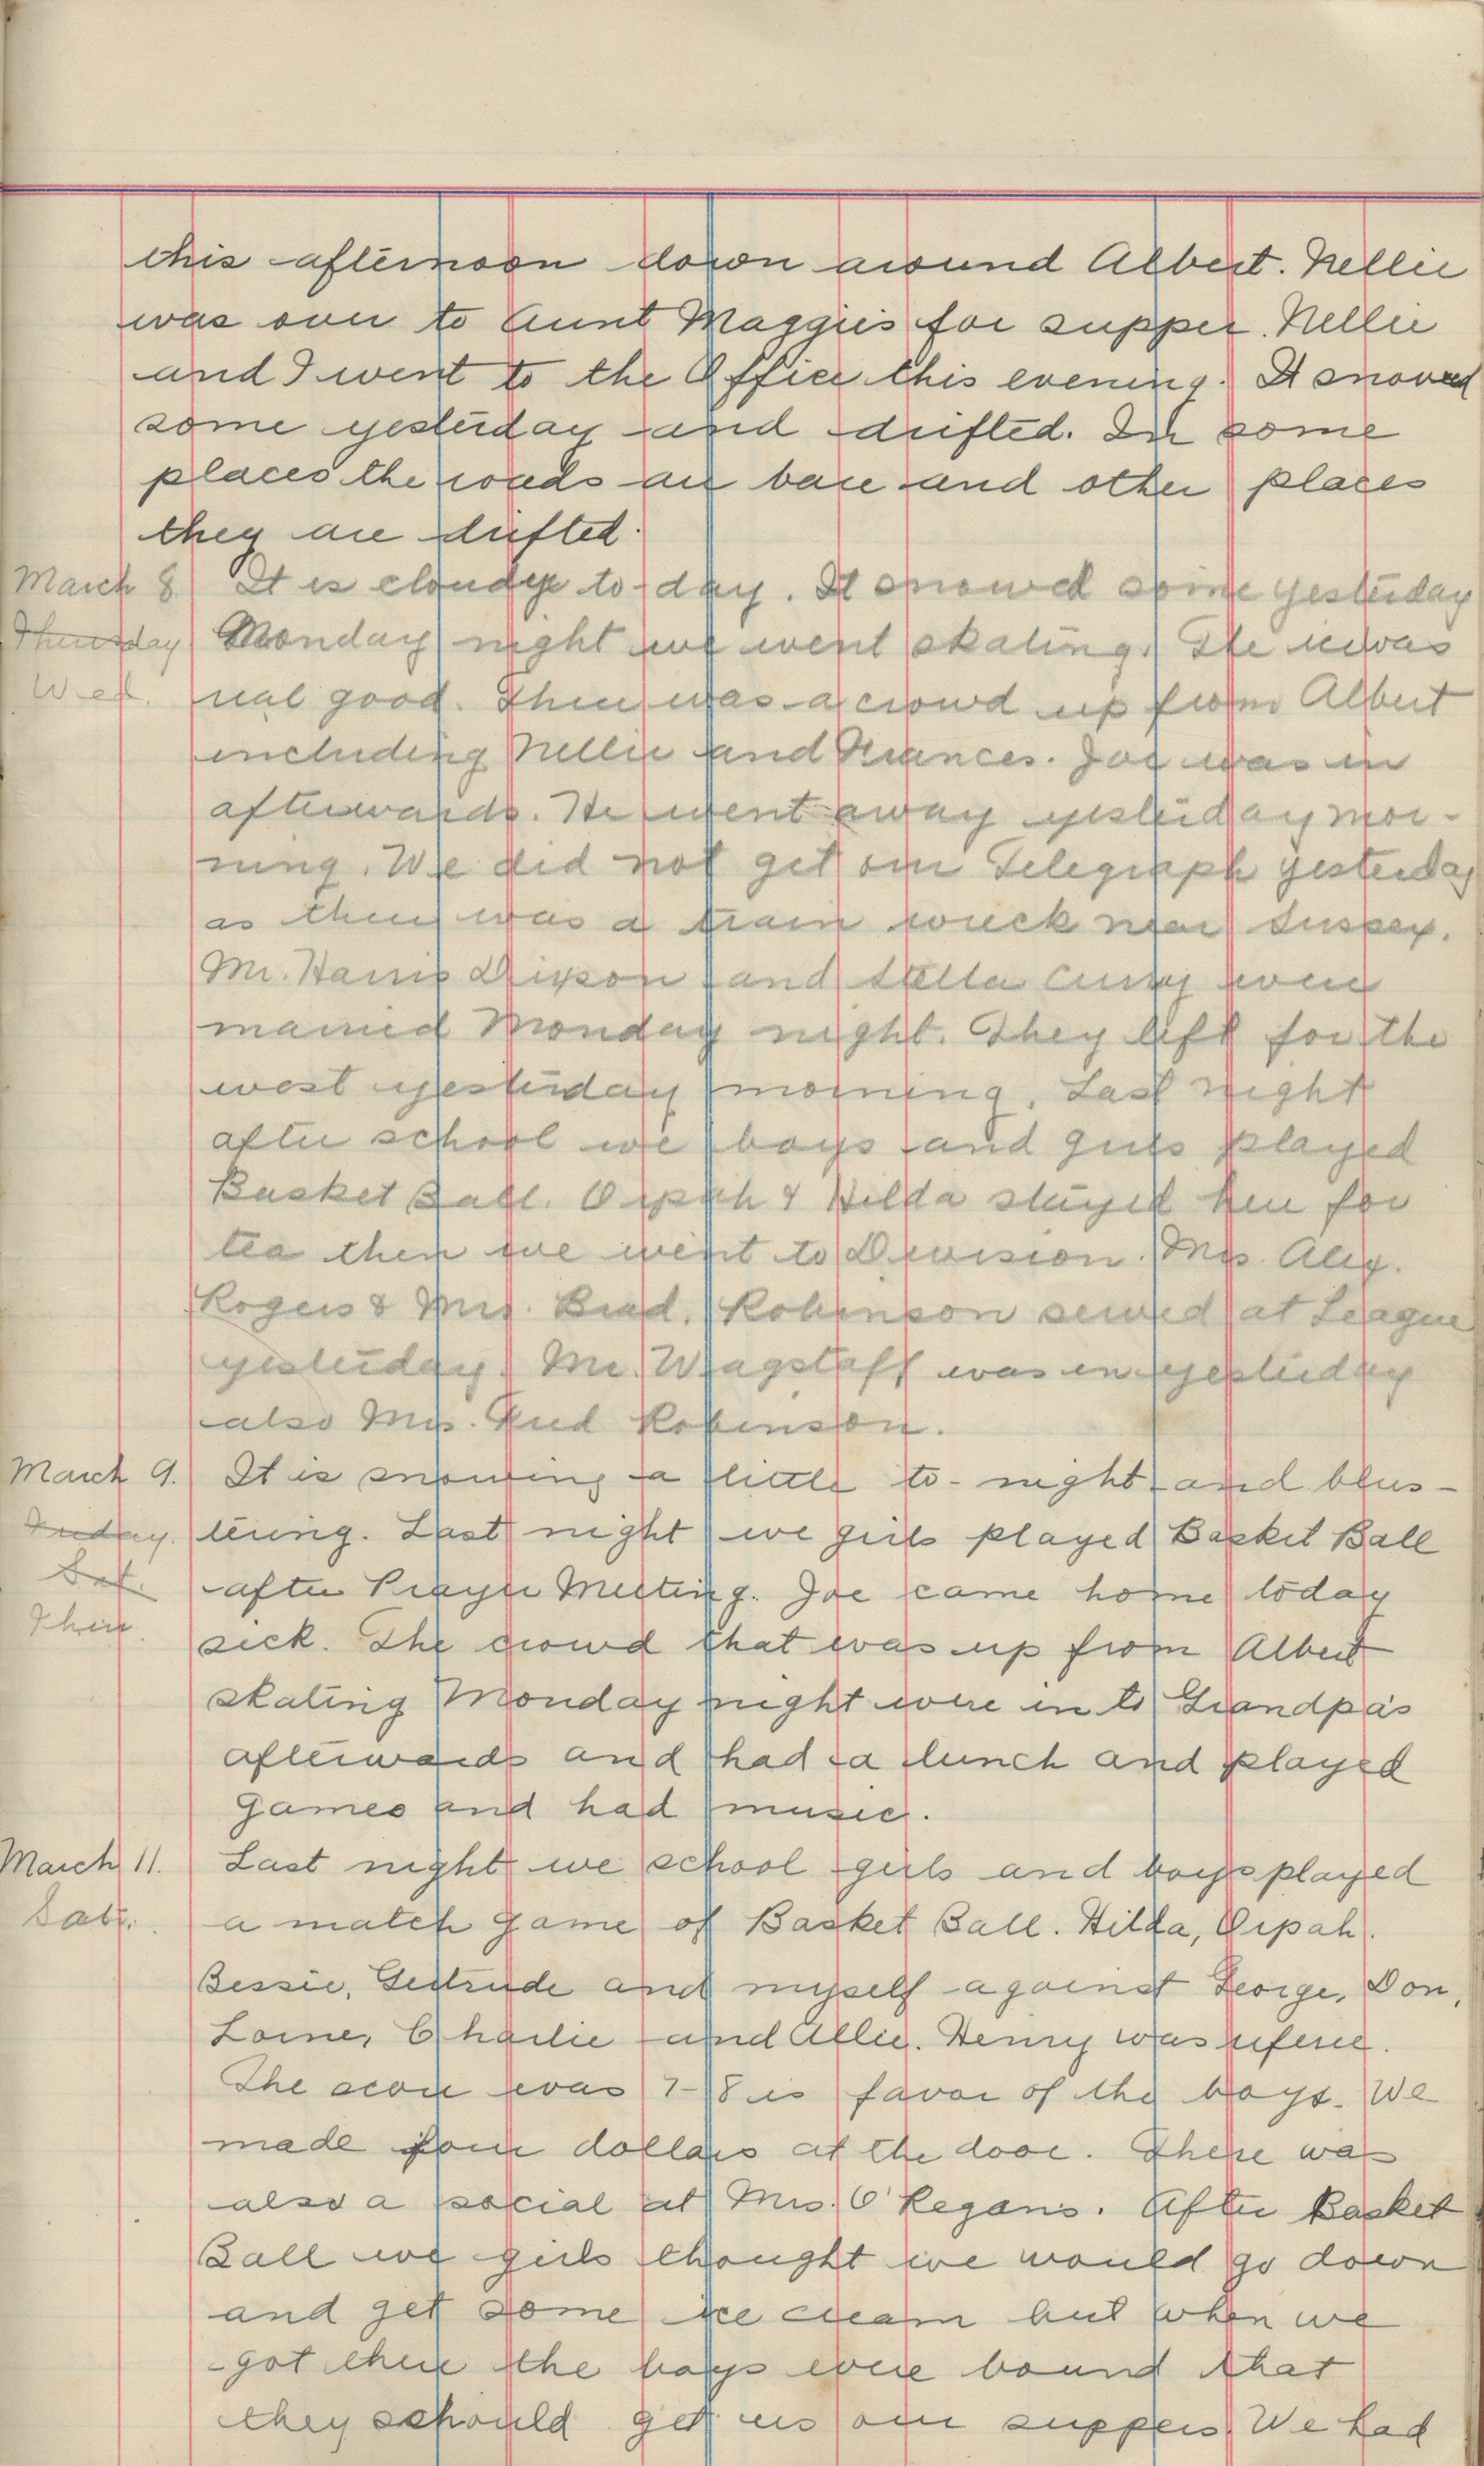 this afternoon down around Albert. Nellie
was over to Aunt Maggie's for supper. Nellie
and I went to the Office this evening. It snowed
some yesterday and drifted. In some
places the roads are bare and other places
they are drifted.
March 8 It is cloudy to-day. It snowed some yesterday
Thursday Monday night we went skating. The ice was
Wed. real good. There was a crowd up from Albert
including Nellie and Frances. Joe was in
afterwards. He went away yesterday mor-
ning. We did not get our Telegraph yesterday
as there was a train wreck near Sussex.
Mr. Harris Dixson and Stella Curry were
married Monday night. They left for the
west yesterday morning. Last night
after school we boys and girls played
Basket Ball. Orpah & Hilda stayed here for
tea then we went to Division. Mrs. Alex.
Rogers & Mrs. Brad. Robinson served at League
yesterday. Mr. Wagstaff was in yesterday
also Mrs. Fred Robinson.
March 9. It is snowing a little to-night and blus-
Friday. tering. Last night we girls played Basket Ball
Sat. after Prayer Meeting. Joe came home today
Thur. sick. The crowd that was up from Albert
skating Monday night were in to Grandpa's
afterwards and had a lunch and played
games and had music.
March 11. Last night we school girls and boys played
Sat. a match game of Basket Ball. Hilda, Orpah.
Bessie, Gertrude and myself against George, Don,
Lorne, Charlie and Allie. Henry was referee.
The score was 7-8 is favor of the boys. We
made four dollars at the door. There was
also a social at Mrs. O'Regan's. After Basket
Ball we girls thought we would go down
and get some ice cream but when we
got there the boys were bound that
they schould get us our suppers. We had